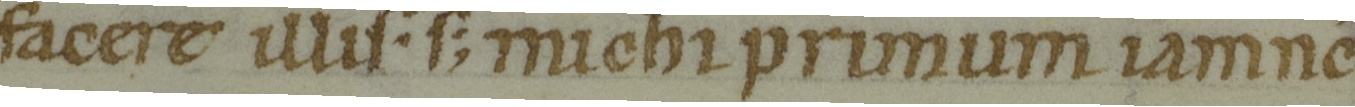 facere illis· s; michi primum iam nc̄